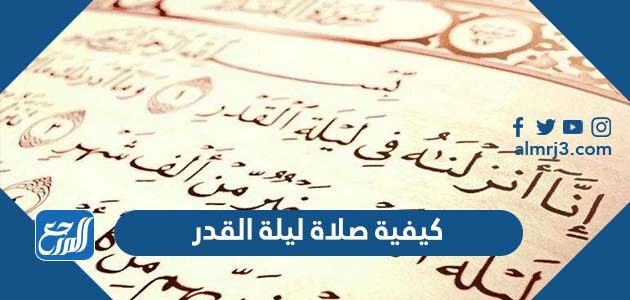 سورة القدر
بِسْمِ
إِنَّآ أَنزَلْنَٰهُ فِى لَيْلَةِ ٱلْقَدْرِ ١ وَمَآ أَدْرَىٰكَ
لَيْلَةُ خَيْرٌ مِّنْ أَلْفِ شَهْرٍ ٣
رَبِّهِم مِّن
almrj3.com
كيفية صلاة ليلة القدر
المرجع